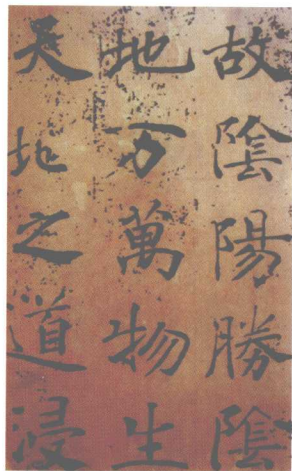 故陰陽勝陰
地方萬物生
天地之道浸